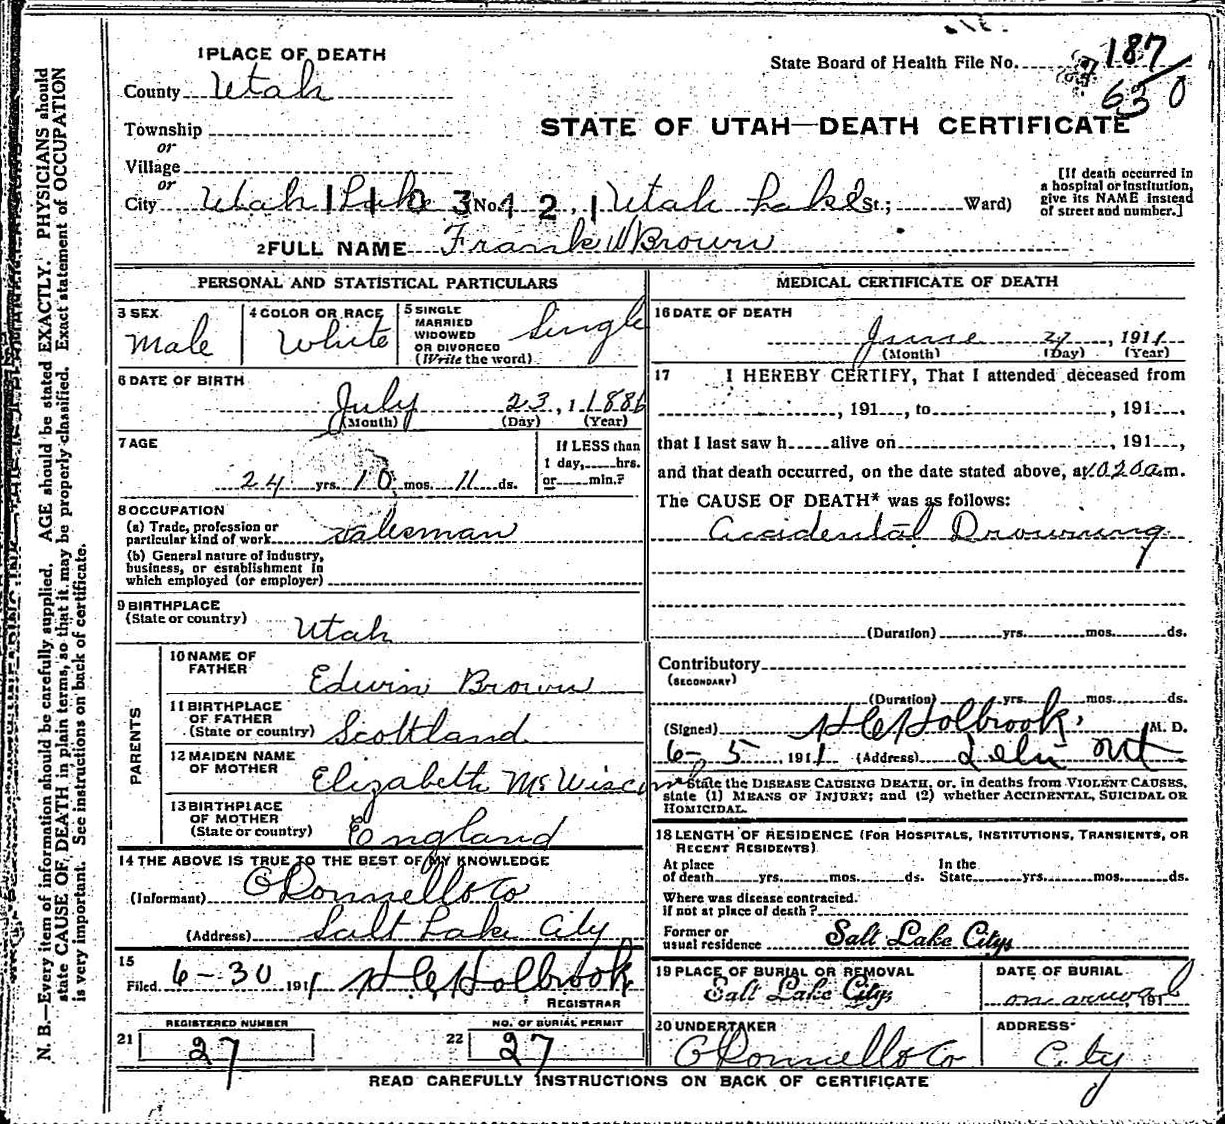 1 PLACE OF DEATH
County Utah
Township
or
Village
or
City Utah Lake No. Utah Lake St.; Ward)
1103421
State Board of Health File No. 187
630
STATE OF UTAH—DEATH CERTIFICATE
[If death occurred in
a hospital or institution,
give its NAME instead
of street and number.]
2 FULL NAME Frank W Brown
PERSONAL AND STATISTICAL PARTICULARS
3 SEX
Male
4 COLOR OR RACE
White
5 SINGLE
MARRIED
WIDOWED
OR DIVORCED
(Write the word)
Single
6 DATE OF BIRTH
July 23, 1 1886
(Month) (Day) (Year)
7 AGE
24 yrs. 10 mos. 11 ds.
If LESS than
1 day, hrs.
or min.?
8 OCCUPATION
(a) Trade, profession or
particular kind of work salesman
(b) General nature of industry,
business, or establishment in
which employed (or employer)
9 BIRTHPLACE
(State or country)
Utah
PARENTS
10 NAME OF
FATHER
Edwin Brown
11 BIRTHPLACE
OF FATHER
(State or country)
Scottland
12 MAIDEN NAME
OF MOTHER
Elizabeth
13 BIRTHPLACE
OF MOTHER
(State or country)
England
14 THE ABOVE IS TRUE TO THE BEST OF MY KNOWLEDGE
(Informant) O'Donnell & Co
(Address) Salt Lake City
15
Filed 6-30 1911 H C Holbrook
REGISTRAR
REGISTERED NUMBER
21 27
NO. OF BURIAL PERMIT
22 27
MEDICAL CERTIFICATE OF DEATH
16 DATE OF DEATH
June 1911
(Month) (Day) (Year)
17 I HEREBY CERTIFY, That I attended deceased from
, 191 , to , 191 ,
that I last saw h alive on 191 ,
and that death occurred, on the date stated above, at 1020 a m.
The CAUSE OF DEATH* was as follows:
Accidental Drowning
(Duration) yrs. mos. ds.
Contributory
(SECONDARY)
(Duration) yrs. mos. ds.
(Signed) H C Holbrook, M. D.
6-5 1911 (Address) Lehi Ut
*State the DISEASE CAUSING DEATH, or, in deaths from VIOLENT CAUSES,
state (1) MEANS OF INJURY; and (2) whether ACCIDENTAL, SUICIDAL OR
HOMICIDAL.
18 LENGTH OF RESIDENCE (FOR HOSPITALS, INSTITUTIONS, TRANSIENTS, OR
RECENT RESIDENTS)
At place
of death yrs. mos. ds.
In the
State yrs. mos. ds.
Where was disease contracted,
if not at place of death?
Former or
usual residence Salt Lake City
19 PLACE OF BURIAL OR REMOVAL
Salt Lake City
DATE OF BURIAL
on arrival 191
20 UNDERTAKER
O'Donnell & Co
ADDRESS
City
READ CAREFULLY INSTRUCTIONS ON BACK OF CERTIFICATE
N. B.—Every item of information should be carefully supplied. AGE should be stated EXACTLY. PHYSICIANS should
state CAUSE OF DEATH in plain terms, so that it may be properly classified. Exact statement of OCCUPATION
is very important. See instructions on back of certificate.